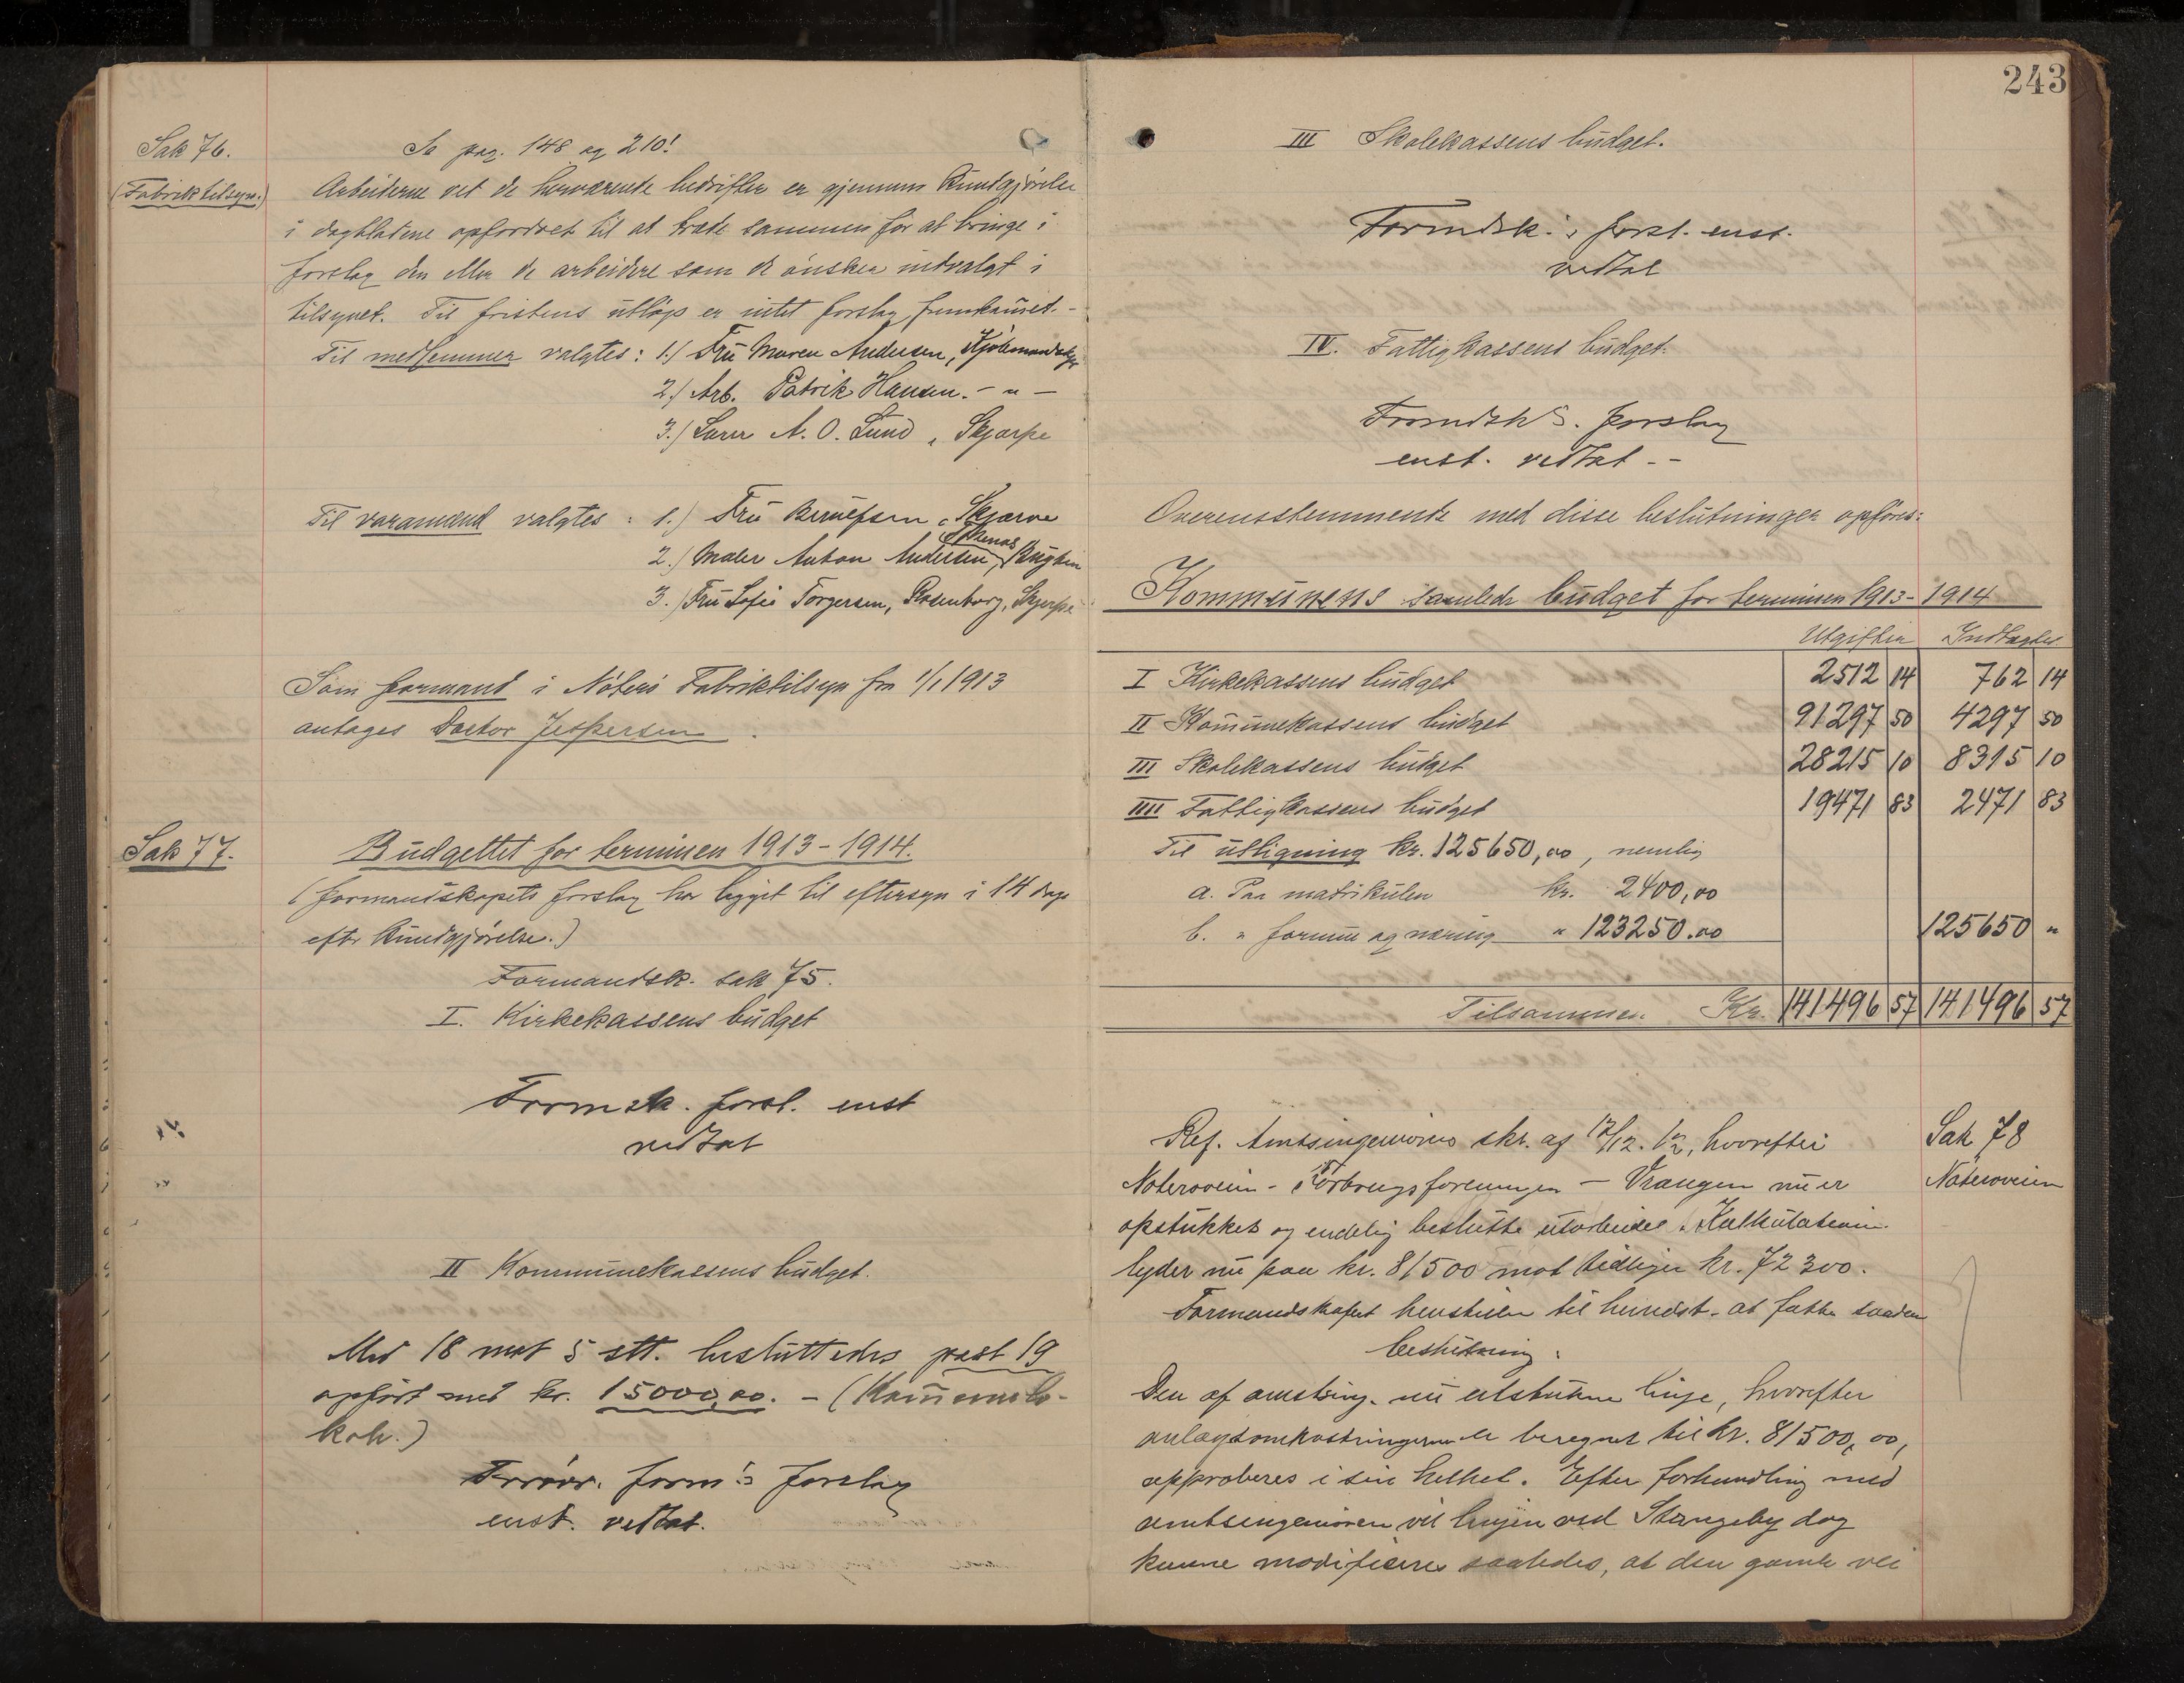 Sak 76.
(Fabriktilsyn.)
Se pag. 148 og 210!
Arbeiderne vet de herværende bedrifter er gjennem kundgjørelse
i dagbladene opfordret til at træde sammen for at bringe i
forslag den eller de arbeidere som de ønsker indvalgt i
tilsynet. Til fristens utløp er intet forslag fremkommet. -
Til medlemmer valgtes: 1.) Fru Maren Andersen,
2.) Arb. Patrik Hansen. - " -
3.) Lærer N. O. Lund, Skjærpe
Til varamænd valgtes: 1.) Fru Skjærve
2.) Maler Anton Andersen,
3.) Fru Sofie Torgersen, Rosenborg, Skjerpe
Som formand i Nøterø Fabriktilsyn fra 1/1 1913
antages Doktor Jespersen.
Sak 77.
Budgettet for terminen 1913-1914.
(formandskapets forslag har ligget til eftersyn i 14 dage
efter kundgjørelse.)
Formandsk. sak 75.
I. Kirkekassens budget
Formsk. forsl. enst
vedtat
II Kommunekassens budget.
Med 18 mot 5 stt. besluttedes post 19
opført med kr. 15000,00. - (
Forøvr. form's forslag
enst. vedtat.
243
III Skolekassens budget.
Formdsk.'s forsl. enst.
vedtat
IV. Fattigkassens budget.
Formdsk's. forslag
enst. vedtat --
Overensstemmende med disse beslutninger opføres:
Kommunens samlede budget for terminen 1913-1914
Utgifter Indtægter
I Kirkekassens budget 2512 14 762 14
II Kommunekassens budget 91297 50 4297 50
III Skolekassens budget 28215 10 8315 10
IIII Fattigkassens budget 19471 83 2471 83
Til utligning kr. 125650,00, nemlig
a. Paa matrikulen kr. 2400,00
b. " formue og næring " 123250.00 125650 "
Tilsammen Kr. 141496 57 141496 57
Sak 78
Nøterøveien
Ref. Amtsingeniørens skr. af 12/12. 12, hvorefter
Nøterøveien - - Vrangen nu er
opstukket og endelig utarbeidet. Kalkulationen
lyder nu paa kr. 81500 mot tidligere kr. 72300.
Formandskapet henstiller til herredst. at fatte saadan
beslutning:
Den af amtsing. nu utstukne linje, hvorefter
anlægsomkostningerne er beregnet til kr. 81500,00,
approberes i sin helhet. Efter forhandling med
amtsingeniøren vil linjen ved Stangeby dog
kunne modificeres saaledes, at den gamle vei